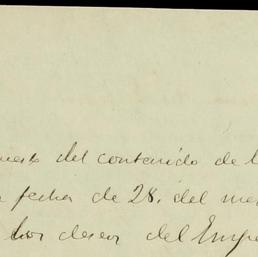 del contenido de l
fecha de 28. del me
los deseos del Empe